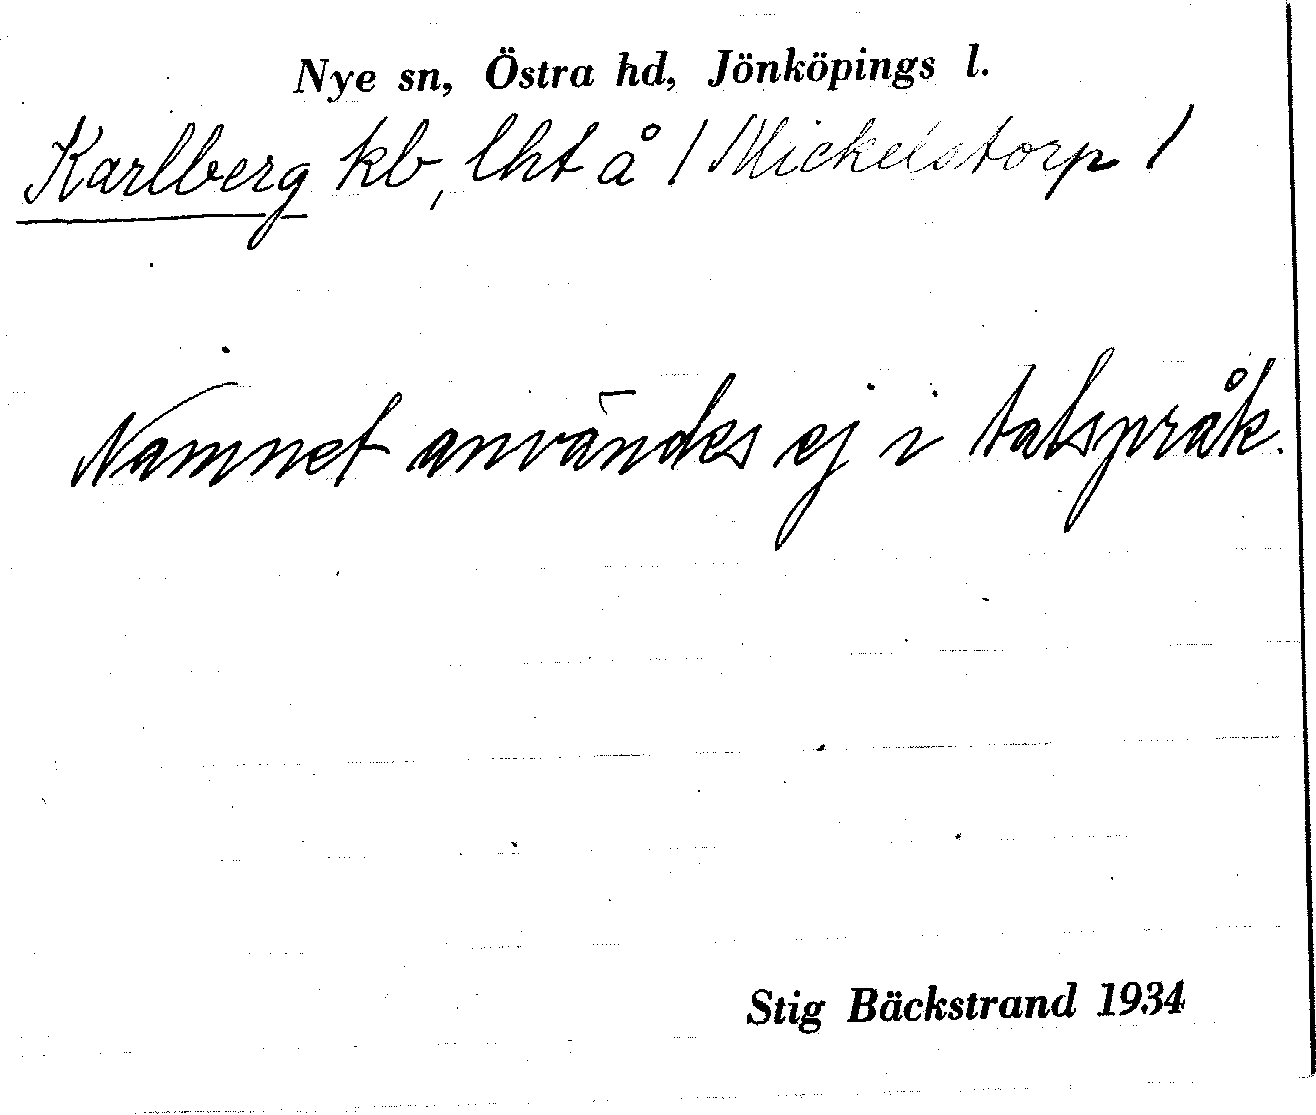 Nye sn, Östra hd, Jönköpings l.
Karlberg kb, lht å / Mickelstorp /
Namnet användes ej i talspråk.
Stig Bäckstrand 1934